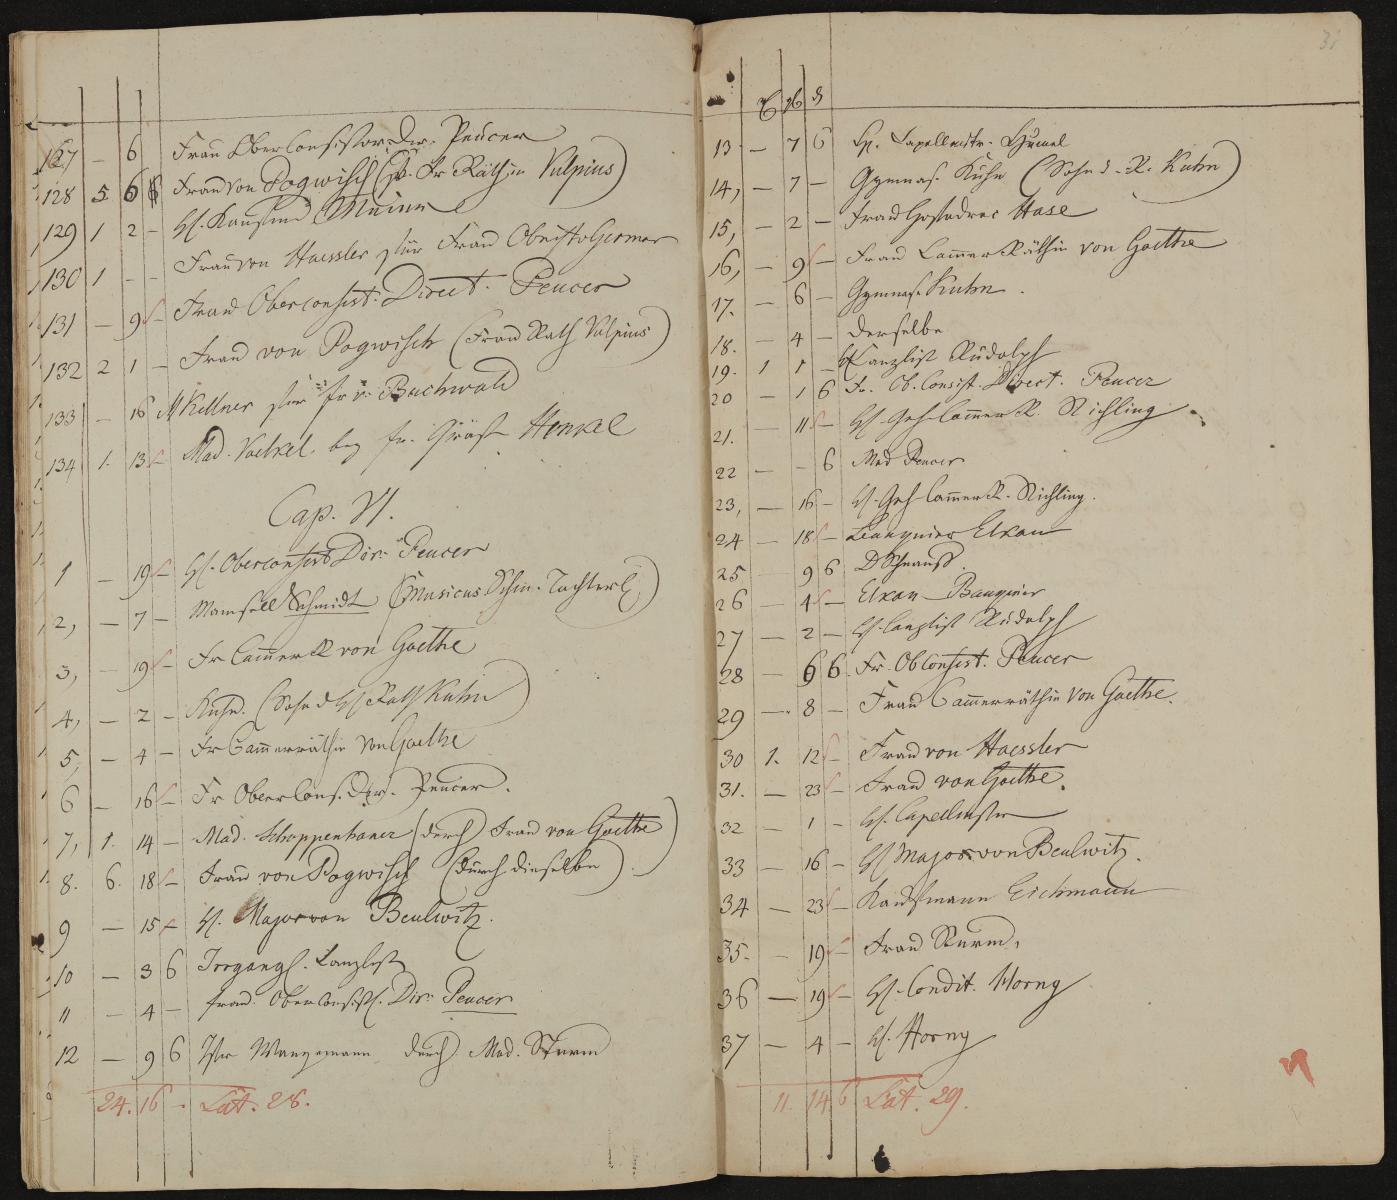 127 — 6 Frau Oberconsistor. Dir. Peucer
128 5 6 Frau von Pogwisch (Fr Räthin Vulpius)
129 1 2 — H. Kaufmd
130 1 - - Frau von Haessler für Frau Obrist v Germar
131 — 9 — Frau Oberconsist. Direct. Peucer
132 2 1 — Frau von Pogwisch (Frau Rath Vulpius)
133 — 16 M Kellner für Fr v. Buchwald
134 1. 13 — Mad. Voelkel. bey fr. Gräfin Henkel
Cap. VI.
1 — 19 — H. Oberconsist Dir. Peucer
2, — 7 — Mamsell Schmidt (Musicus Schm. Tochter)
3, — 19 — Fr Cam̅er R von Goethe
4, — 2 — Kuhn. (Sohn d H Rath Kuhn)
5, — 4 — Fr Cam̅erräthin von Goethe
6 — 16 — Fr Obercons. Dir. Peucer.
7, 1. 14 — Mad. Schoppenhauer (durch Frau von Goethe)
8. 6. 18 — Frau von Pogwisch (durch dieselbe).
9 — 15 — H. Major von Beulwitz.
10 — 3 6 Irrgang. Canzlist
11 — 4 — Frau. Oberconsist. Dir. Peucer
12 — 9 6 durch Mad. Sturm
24. 16 - Lat. 28.
31
13 — 7 6 H. Capellmstr. Hum̅el
14, — 7 — Gymnas. Kuhn (Sohn d. R. Kuhn)
15, — 2 — Frau Hase
16, — 9 — Frau Cam̅er Räthin von Goethe
17. — 6 — Gymnas. Kuhn.
18. — 4 — derselbe
19. 1 1 — Canzlist Rudolph
20 — 1 6 Fr. Ob. Consist. Direct. Peucer
21. — 11 — H. Geh. Cam̅er R. Stichling.
22 — - 6 Mad Peucer
23, — 16 — H. Geh Cam̅er R. Stichling.
24 — 18 — Banquier Elkan
25 — 9 6 D Schnauß.
26 — 4 — Elkan Banquier
27 — 2 — H. Canzlist Rudolph
28 — 6 6. Fr. Obconsist. Peucer
29 — 8 — Frau Cam̅erräthin von Goethe.
30 1. 12 — Frau von Haessler
31. — 23 — Frau von Goethe.
32 — 1 — H. Capellmstr
33 — 16 — H Major von Beulwitz.
34 — 23 — Kaufmann Eichmann
35. — 19 — Frau Sturm.
36 — 19 — H. Condit. Horny
37 — 4 — H. Horny
11. 14 6 Lat. 29.